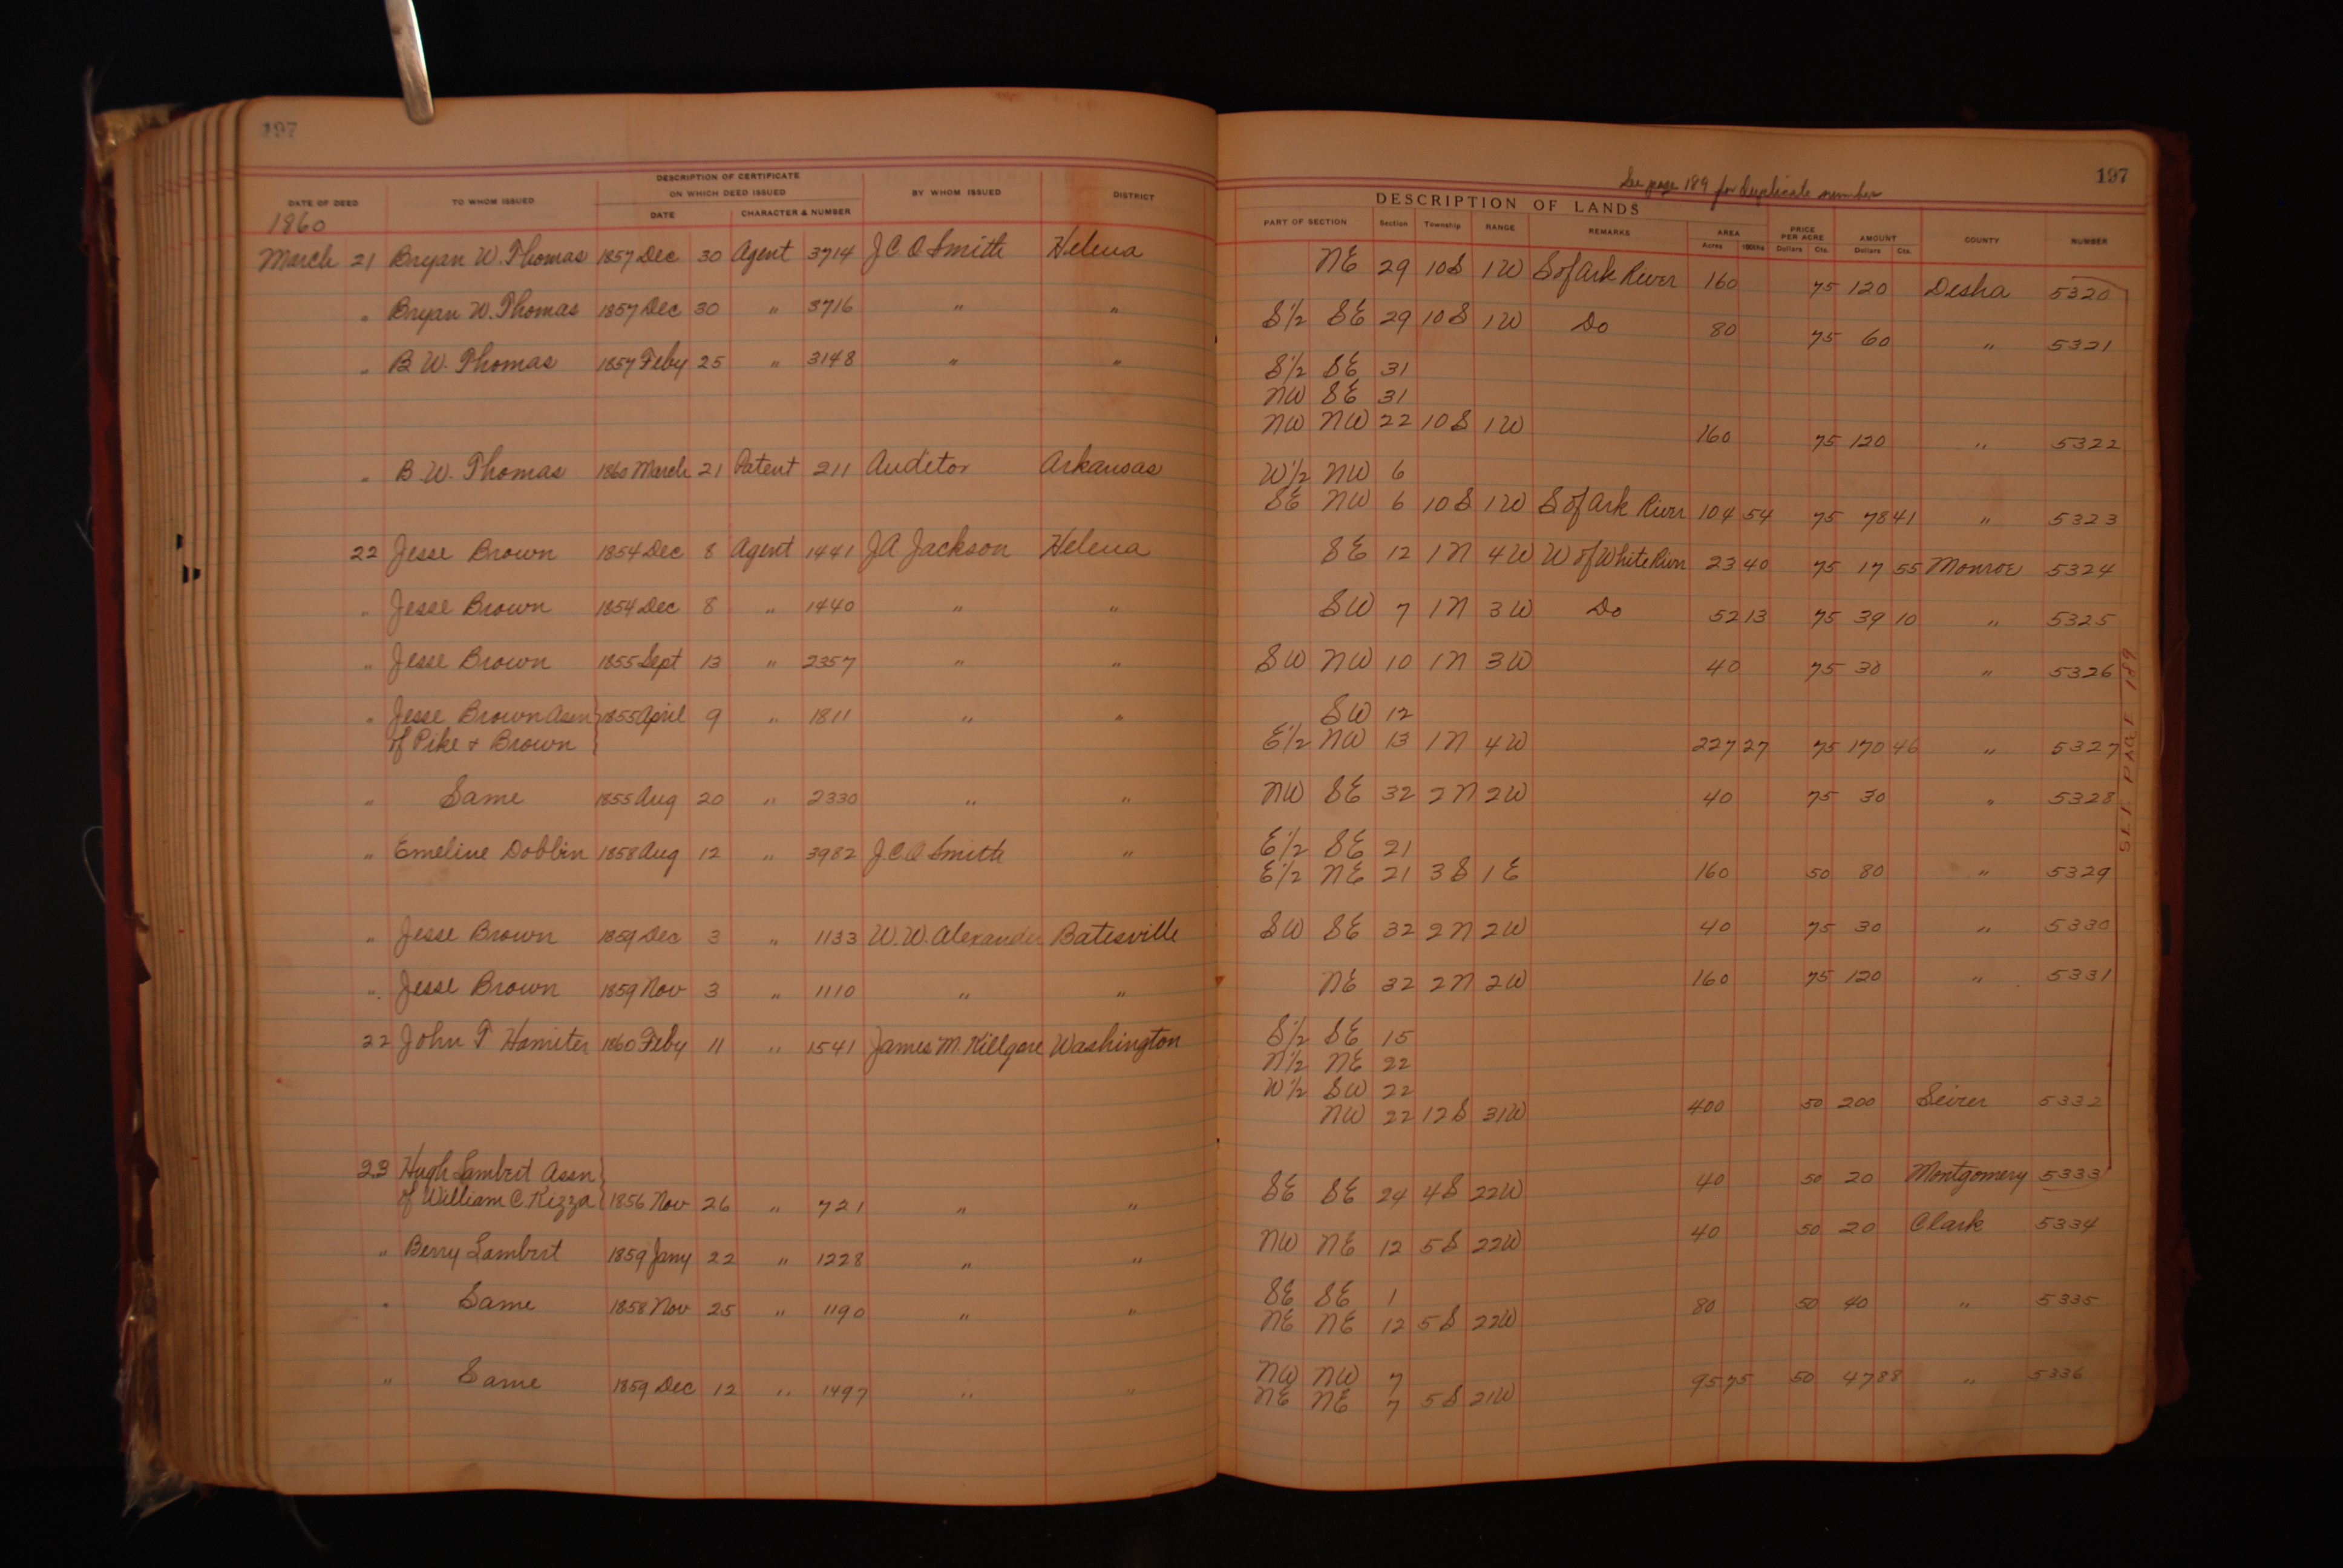 197
DESCRIPTION OF CERTIFICATE
ON WHICH DEED ISSUED
DATE OF DEED TO WHOM ISSUED DATE CHARACTER & NUMBER BY WHOM ISSUED DISTRICT
1860
March 21 Bryan W. Thomas 1857 Dec 30 Agent 3714 J C O Smith Helena
" Bryan W. Thomas 1857 Dec 30 " 3716 " "
" B W. Thomas 1857 Feby 25 " 3148 " "
" B. W. Thomas 1860 March 21 Patent 211 Auditor Arkansas
22 Jesse Brown 1854 Dec 8 Agent 1441 J A Jackson Helena
" Jesse Brown 1854 Dec 8 " 1440 " "
" Jesse Brown 1855 Sept 13 " 2357 " "
" Jesse Brown Assn } 1855 April 9 " 1811 " "
of Pike + Brown
" Same 1855 Aug 20 " 2330 " "
" Emeline Dobbin 1858 Aug 12 " 3982 J. C. O Smith "
" Jesse Brown 1859 Dec 3 " 1133 W. W. Alexander Batesville
" Jesse Brown 1859 Nov 3 " 1110 " "
22 John T Hamiter 1860 Feby 11 " 1541 James M. Killgore Washington
23 Hugh Lambert Assn }
of William C. Kizza 1856 Nov 26 " 721 " "
" Berry Lambert 1859 Jany 22 " 1228 " "
" Same 1858 Nov 25 " 1190 " "
" Same 1859 Dec 12 " 1497 " "
197
See page 189 for duplicate number
DESCRIPTION OF LANDS
PART OF SECTION Section Township RANGE REMARKS AREA PRICE PER ACRE AMOUNT COUNTY NUMBER
Acres 100ths Dollars Cts. Dollars Cts.
NE 29 10S 1W S of Ark River 160 75 120 Desha 5320
S½ SE 29 10S 1W Do 80 75 60 " 5321
S½ SE 31
NW SE 31
NW NW 22 10S 1W 160 75 120 " 5322
W½ NW 6
SE NW 6 10S 1W S of Ark River 104 54 75 78 41 " 5323
SE 12 1N 4W W of White River 23 40 75 17 55 Monroe 5324
SW 7 1N 3W Do 52 13 75 39 10 " 5325
SW NW 10 1N 3W 40 75 30 " 5326
SW 12
E½ NW 13 1N 4W 227 27 75 170 46 " 5327
NW SE 32 2N 2W 40 75 30 " 5328
E½ SE 21
E½ NE 21 3S 1E 160 50 80 " 5329
SW SE 32 2N 2W 40 75 30 " 5330
NE 32 2N 2W 160 75 120 " 5331
S½ SE 15
N½ NE 22
W½ SW 22
NW 22 12S 31W 400 50 200 Seirer 5332
SE SE 24 4S 22W 40 50 20 Montgomery 5333
NW NE 12 5S 22W 40 50 20 Clark 5334
SE SE 1
NE NE 12 5S 22W 80 50 40 " 5335
NW NW 7
NE NE 7 5S 21W 95 75 50 47 88 " 5336
SEE PAGE 189